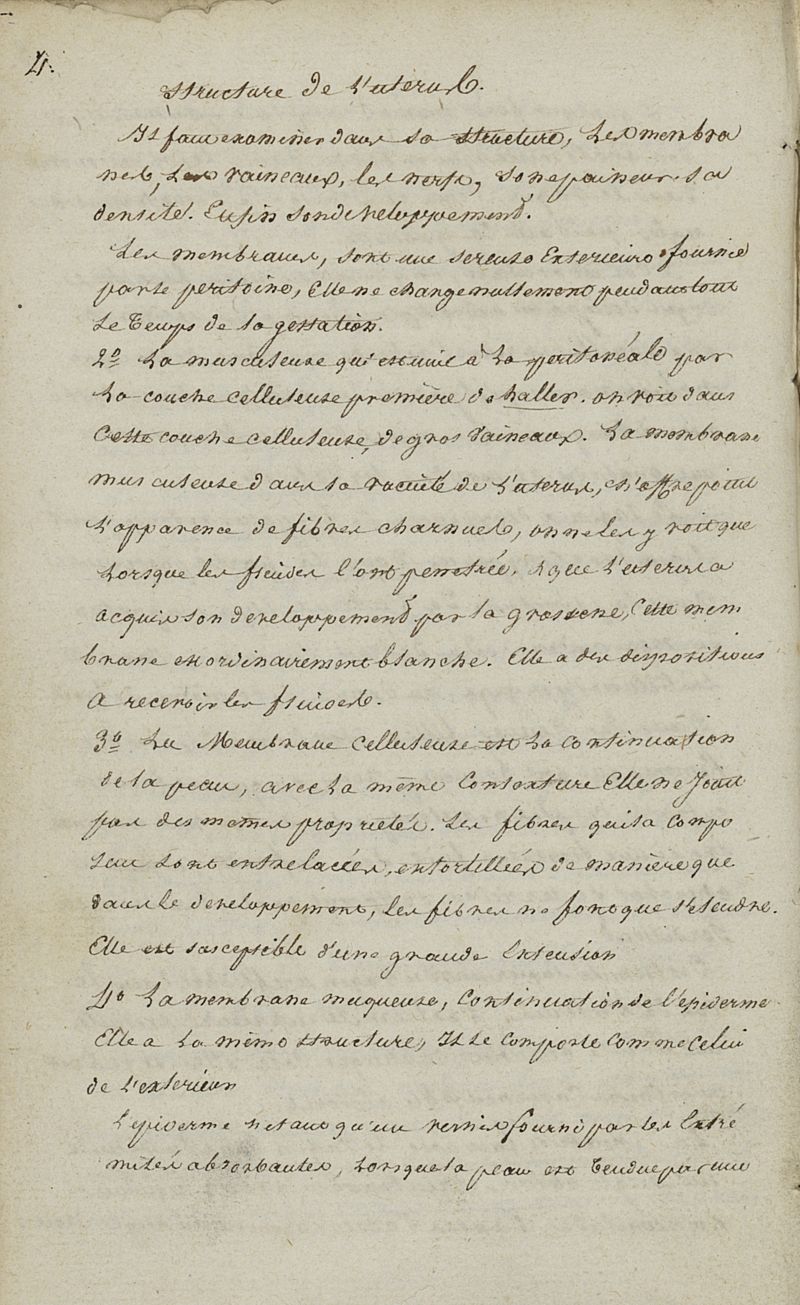 4.
Structure de l'uterus.
Il faut examiner dans sa structure, les membra
nes, les vaineaux, les nerfs, son epaineur. sa
densité. Enfin son developpement.
Les membranes, sont une sereuse Exterieure fournie
par le peritoine, Elle ne change nullement pendant tout
le temps de la gestation.
2º La musculeuse qui est unie à la peritonéale par
la couche celluleuse première de haller. on voit dans
cette couche celluleuse, de gros vaineaux. La membrane
musculeuse dans la vacuité de l'uterus, n'offre point
l'apparence de fibres charnues, on ne les y voit que
lorsque les fluides l'ont penetrée. & que l'uterus a
acquis son developpement par la grossesse, Cette mem
brane est ordinairement blanche. Elle a des dispositions
a recevoir les fluides.
3º La Membrane celluleuse est la continuation
de la peau, avec la même Contexture Elle ne Jouit
pas des mêmes proprietés. Les fibres qui la compo
sent sont entrelacées, entortillées de manière que
dans le developpement, les fibres ne font que s'etendre.
Elle est susceptible d'une grande Extension
4º La membrane muqueuse, Continuation de l'épiderme
Elle a la même structure, Il se comporte comme celui
de l'exterieur
L'epiderme n'etant qu'un vernis fourni par les Extré
mités absorbantes, lorsque la peau est tendue par une